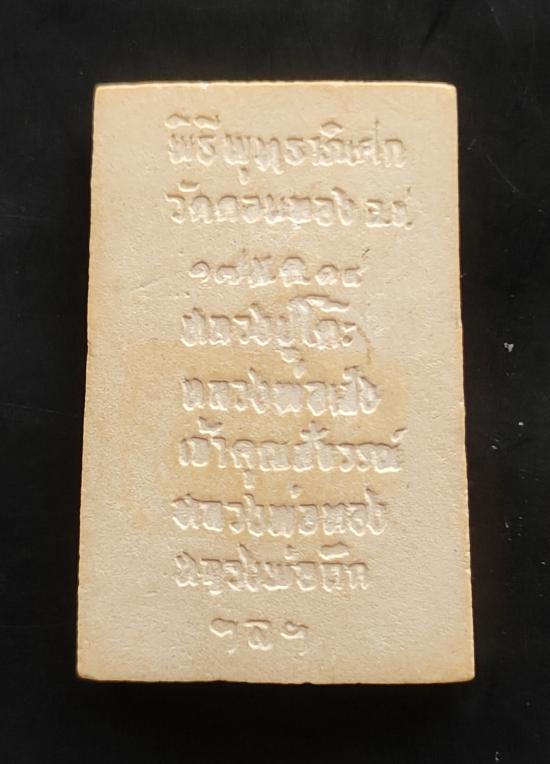 พิธีพุทธาภิเศก
วัดดอนทอง ฉ.ช.
๑๗ มี.ค. ๑๘
หลวงปู่โต๊ะ
หลวงพ่อเส่ง
เจ้าคุณสังวรณ์
หลวงพ่อทอง
หลวงพ่อกึก
ฯลฯ